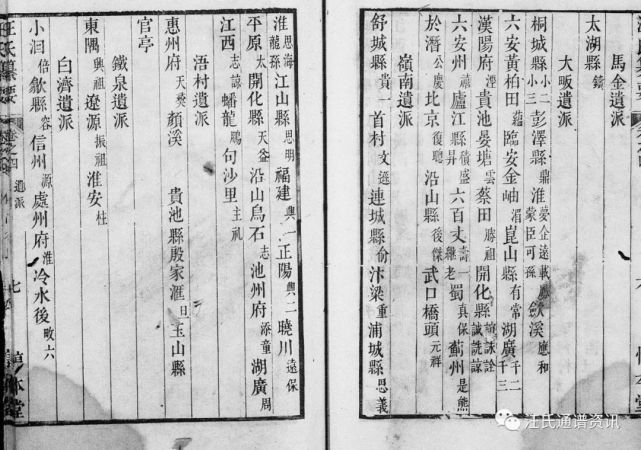 馬金遺派
太湖縣鐃
大畈遺派
桐城縣小二小三彭澤縣鼎淮蒙臣夢企可孫遠載歙溪應和
六安黃柏田臨安金岫湄崑山縣有常湖廣千二千三
漢陽府湮貴池晏塘雲蔡田勝祖開化縣誠詵諒詠詮
六安州蕭廬江縣昇六百丈壽一繼老蜀真保薊州是熊
於潛公慶北京復聰沿山縣後傑武口橋頭元祥
嶺南遺派
舒城縣貴一首村文遜連城縣偷汴梁重浦城縣思義
淮思海龍孫江山縣思明福建興一正陽興二曉川遠保
平原太開化縣天益沿山烏石志池州府添童湖廣周
江西志諒蟠龍鵬句沙里主札
浯村遺派
惠州府天奏顏溪 貴池縣殷家滙日玉山縣
官亭
鐵泉遺派
東隅興祖遼源振祖淮安柱
白濟遺派
小洄倍歙縣容信州源處州府淮冷水後畋六
汪氏纂要 卷之四 遺派 七
汪氏通譜資訊